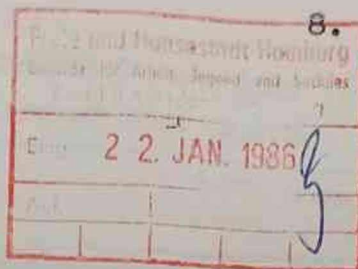 8.
Freie und Hansestadt Hamburg
Behörde für Arbeit, Jugend und Soziales
Eing. 22. JAN. 1986